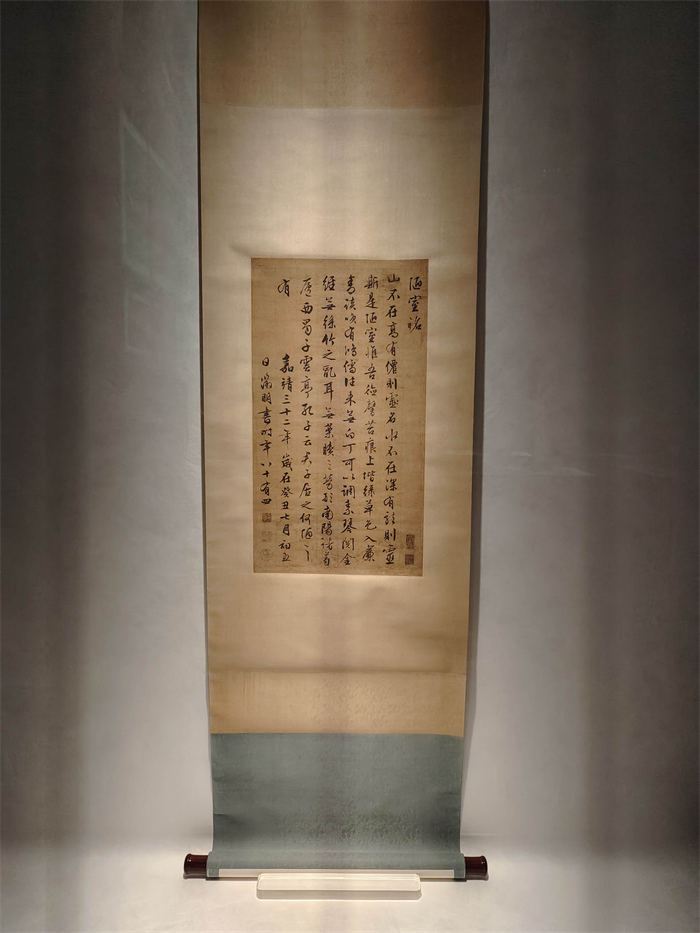 陋室銘
山不在高有僊則靈名水不在深有龍則靈
斯是陋室惟吾德馨苔痕上階綠草色入簾
青談笑有鴻儒往來無白丁可以調素琴閱金
經無絲竹之亂耳無案牘之勞形南陽諸葛
廬西蜀子雲亭孔子云夫子居之何陋之
有
嘉靖三十二年歲在癸丑七月初五
日徵明書時年八十有四